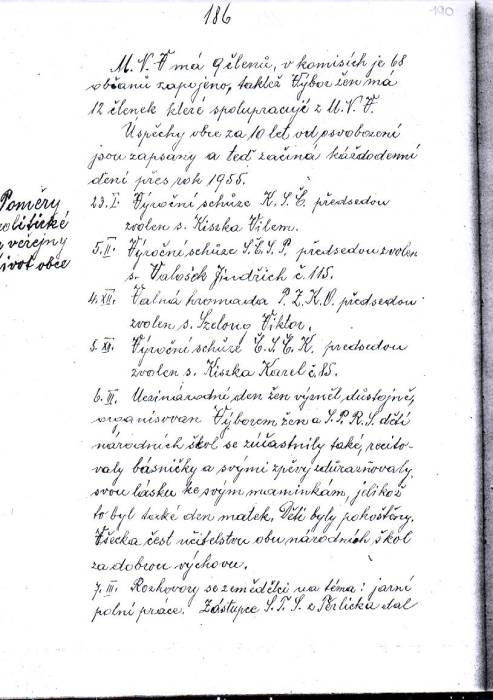 186
190
M.N.V má 9 členů, v komisích je 68
občanů zapojeno, taktéž Výbor žen má
12 členek které spolupracují z M.N.V.
Úspěchy obce za 10 let od osvobození
jsou zapsány a teď začíná každodenní
dení přes rok 1955.
Poměry
politické
a veřejny
život obce
23.I. Výroční schůze K.S.Č. předsedou
zvolen s. Kiszka Vilem.
5.II. Výroční schůze S.Č.S.P. předsedou zvolen
s. Valošek Jindřich č. 115.
4. Valná hromada P.Z.K.O. předsedou
zvolen s. Szelong Viktor.
5. Výroční schůze Č.S.Č.K. predsedou
zvolen s. Kiszka Karel č. 85.
6.III. Mezinárodní den žen vyzněl důstojně,
organisovan Výborem žen a S.P.R.Š. dětí
národních škol se zúčastnily také, recito-
valy básničky a svými zpěvy zdůrazňovaly
svou lásku ke svým maminkám, jelikož
to byl také den matek. Děti byly pohoštěny.
Všecka čest učitelstvu obu národních škol
za dobrou výchovu.
7.III. Rozhovory se zemědělci na téma: jarní
polní práce. Zástupce S.T.S. z Těrlicka dal